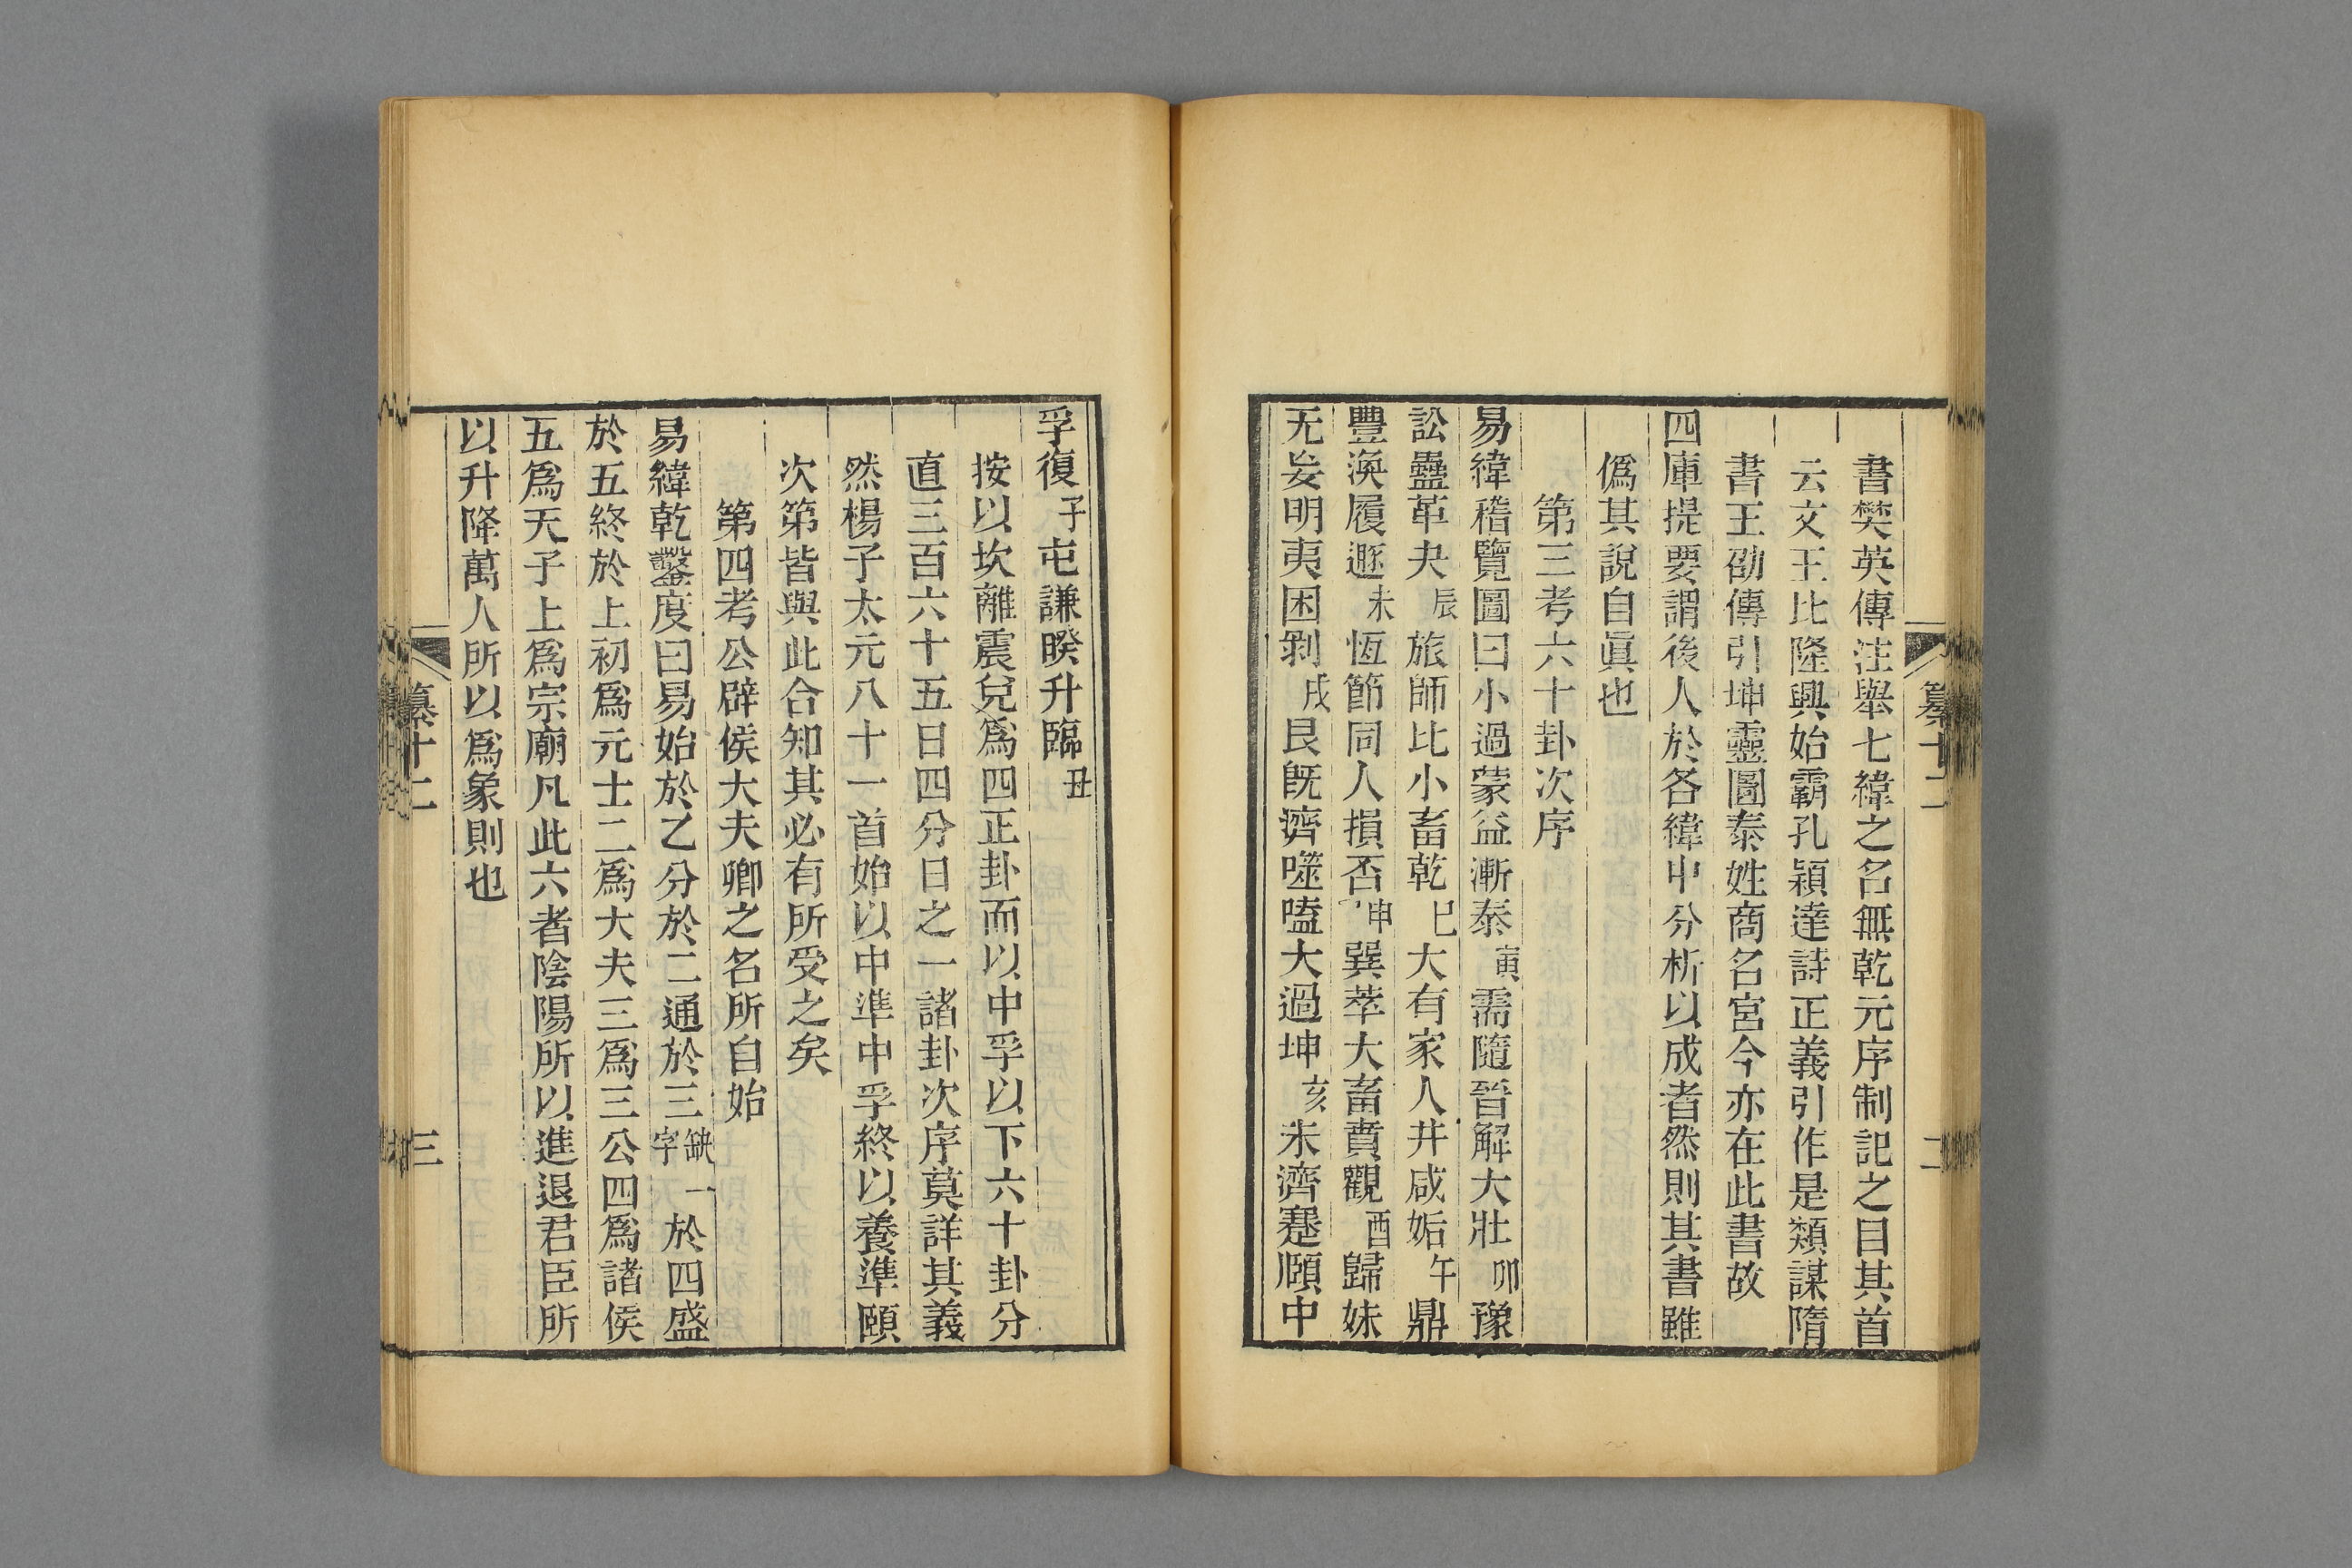 書樊英傳注舉七緯之名無乾元序制記之目其首
云文王比隆興始霸孔穎達詩正義引作是類謀隋
書王劭傳引坤靈圖泰姓商名宮今亦在此書故
四庫提要謂後人於各緯中分析以成者然則其書雖
僞其說自眞也
第三考六十卦次序
易緯稽覽圖曰小過蒙益漸泰寅需隨晉解大壯卯豫
訟蠱革夬辰旅師比小畜乾巳大有家人井咸姤午鼎
豐渙履遯未恆節同人損否申巽萃大畜賁觀酉歸妹
无妄明夷困剝戌艮旣濟噬嗑大過坤亥未濟蹇頤中
孚復子屯謙睽升臨丑
按以坎離震兌爲四正卦而以中孚以下六十卦分
直三百六十五日四分日之一諸卦次序莫詳其義
然楊子太元八十一首始以中準中孚終以養準頤
次第皆與此合知其必有所受之矣
第四考公辟侯大夫卿之名所自始
易緯乾鑿度曰易始於乙分於二通於三缺一字於四盛
於五終於上初爲元士二爲大夫三爲三公四爲諸侯
五爲天子上爲宗廟凡此六者陰陽所以進退君臣所
以升降萬人所以爲象則也
纂十二
二
纂十二
三